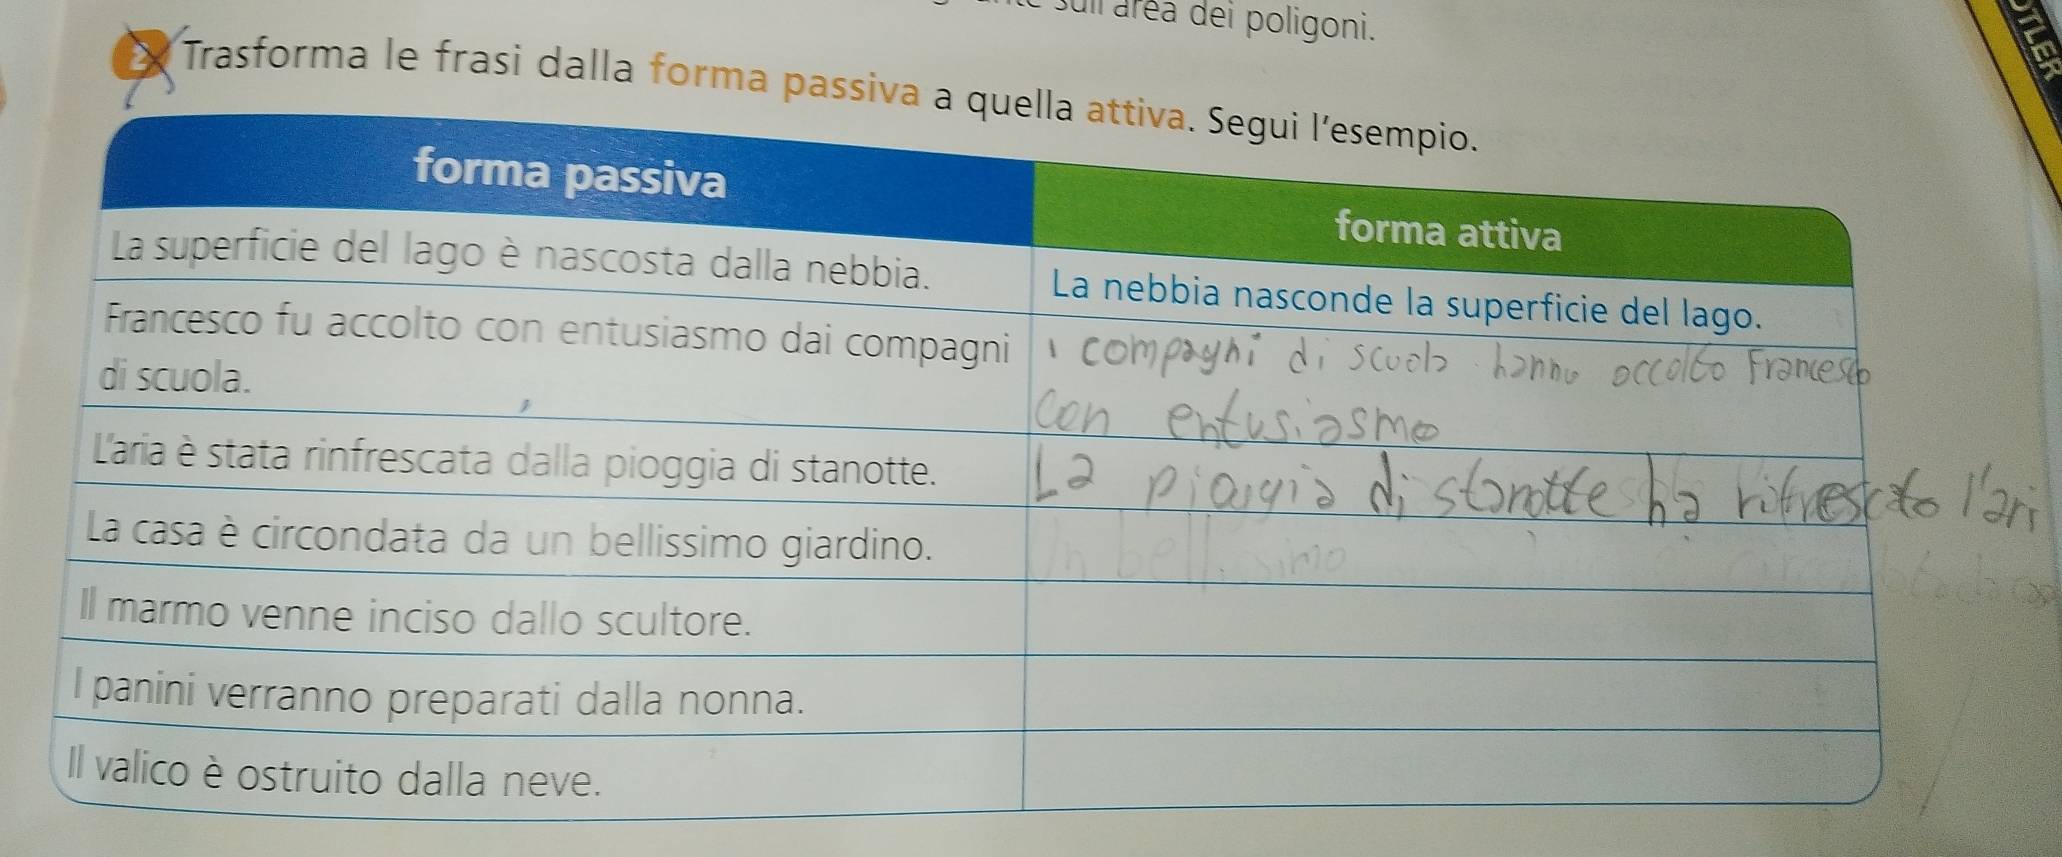 sull'area dei poligoni.
2 Trasforma le frasi dalla forma passiva a quella attiva. Segui l'esempio.
forma passiva
forma attiva
La superficie del lago è nascosta dalla nebbia.
La nebbia nasconde la superficie del lago.
Francesco fu accolto con entusiasmo dai compagni
di scuola.
i compaghi di scuola hanno occolto Francesco
con entusiasmo
L'aria è stata rinfrescata dalla pioggia di stanotte.
La pioggia di stanotte ha rifrescato l'ari
La casa è circondata da un bellissimo giardino.
bellissimo
Il marmo venne inciso dallo scultore.
I panini verranno preparati dalla nonna.
Il valico è ostruito dalla neve.